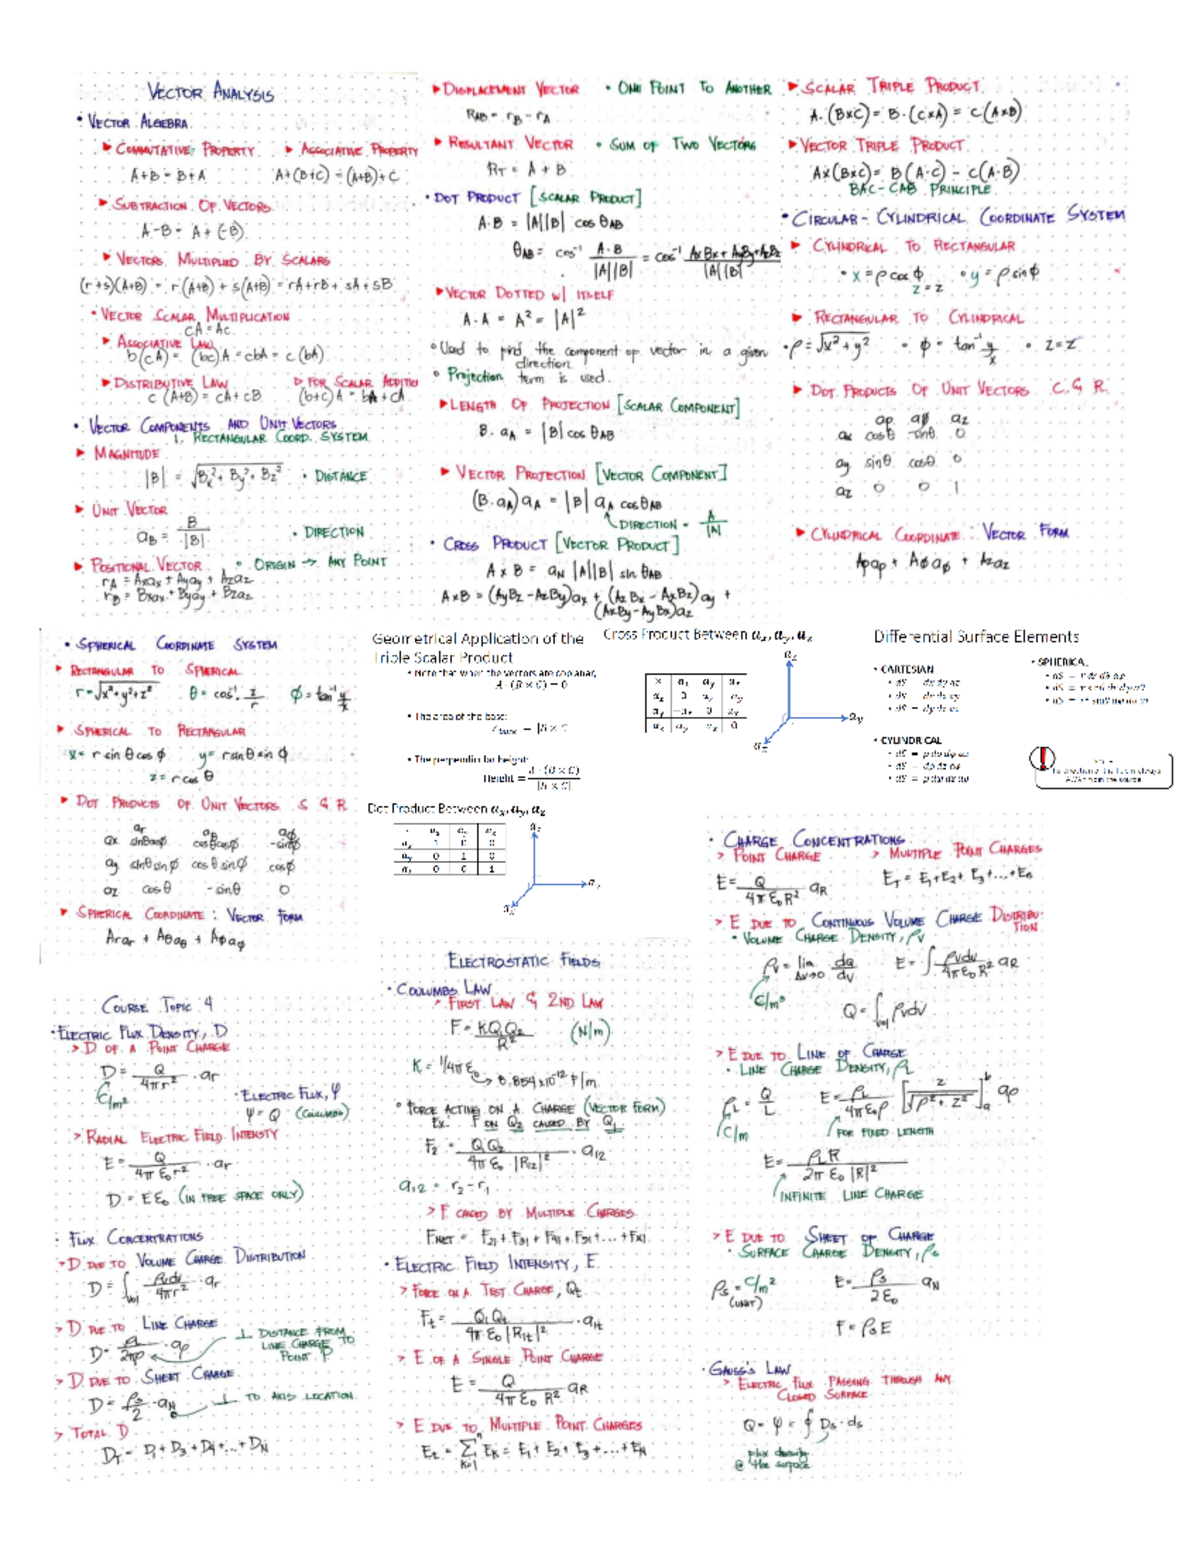 VECTOR ANALYSIS
• VECTOR ALGEBRA
▸ COMMUTATIVE PROPERTY ▸ ASSOCIATIVE PROPERTY
A+B = B+A A+(B+C) = (A+B)+C
▸ SUBTRACTION OF VECTORS
A-B = A+(-B)
▸ VECTORS MULTIPLIED BY SCALARS
(r+s)(A+B) = r(A+B) + s(A+B) = rA+rB+sA+sB
• VECTOR SCALAR MULTIPLICATION
cA = Ac
▸ ASSOCIATIVE LAW
b(cA) = (bc)A = cbA = c(bA)
▸ DISTRIBUTIVE LAW ▷ FOR SCALAR ADDITIO
c(A+B) = cA+cB (b+c)A = bA+cA
• VECTOR COMPONENTS AND UNIT VECTORS
1. RECTANGULAR COORD. SYSTEM
▸ MAGNITUDE
|B| = √(Bx²+By²+Bz²) • DISTANCE
▸ UNIT VECTOR
aB = B/|B| • DIRECTION
▸ POSITIONAL VECTOR • ORIGIN → ANY POINT
rA = Axax + Ayay + Azaz
rB = Bxax + Byay + Bzaz
▸ DISPLACEMENT VECTOR • ONE POINT TO ANOTHER
RAB = rB - rA
▸ RESULTANT VECTOR • SUM OF TWO VECTORS
RT = A + B
• DOT PRODUCT [SCALAR PRODUCT]
A·B = |A||B| cos θAB
θAB = cos⁻¹ A·B/|A||B| = cos⁻¹ AxBx+AyBy+AzBz/|A||B|
▸ VECTOR DOTTED w/ ITSELF
A·A = A² = |A|²
• Used to find the component of vector in a given
direction
• Projection term is used.
▸ LENGTH OF PROJECTION [SCALAR COMPONENT]
B·aA = |B| cos θAB
▸ VECTOR PROJECTION [VECTOR COMPONENT]
(B·aA)aA = |B| aA cos θAB
DIRECTION = A/|A|
• CROSS PRODUCT [VECTOR PRODUCT]
A x B = aN |A||B| sin θAB
AxB = (AyBz-AzBy)ax + (AzBx-AxBz)ay +
(AxBy-AyBx)az
▸ SCALAR TRIPLE PRODUCT
A·(BxC) = B·(CxA) = C(AxB)
▸ VECTOR TRIPLE PRODUCT
Ax(BxC) = B(A·C) - C(A·B)
BAC-CAB PRINCIPLE
• CIRCULAR-CYLINDRICAL COORDINATE SYSTEM
▸ CYLINDRICAL TO RECTANGULAR
• x = ρ cos φ • y = ρ sin φ
z = z
▸ RECTANGULAR TO CYLINDRICAL
• ρ = √(x²+y²) • φ = tan⁻¹ y/x • z = z
▸ DOT PRODUCTS OF UNIT VECTORS C & R
aρ aφ az
ax cosθ -sinθ 0
ay sinθ cosθ 0
az 0 0 1
▸ CYLINDRICAL COORDINATE: VECTOR FORM
Aρaρ + Aφaφ + Azaz
• SPHERICAL COORDINATE SYSTEM
▸ RECTANGULAR TO SPHERICAL
r = √(x²+y²+z²) θ = cos⁻¹ z/r φ = tan⁻¹ y/x
▸ SPHERICAL TO RECTANGULAR
x = r sin θ cos φ y = r sin θ sin φ
z = r cos θ
▸ DOT PRODUCTS OF UNIT VECTORS S & R
ar aθ aφ
ax sinθcosφ cosθcosφ -sinφ
ay sinθsinφ cosθsinφ cosφ
az cosθ -sinθ 0
▸ SPHERICAL COORDINATE: VECTOR FORM
Arar + Aθaθ + Aφaφ
Geometrical Application of the
Triple Scalar Product
• Note that when the vectors are coplanar,
A·(B×C) = 0
• The area of the base:
• The perpendicular height:
Height = A·(B×C)/|B×C|
Dot Product Between ax, ay, az
Cross Product Between ax, ay, az
Differential Surface Elements
• CARTESIAN
• SPHERICAL
• CYLINDRICAL
COURSE TOPIC 4
• ELECTRIC FLUX DENSITY, D
> D OF A POINT CHARGE
D = Q/4πr² · ar
C/m²
• ELECTRIC FLUX, Ψ
Ψ = Q (COULOMBS)
> RADIAL ELECTRIC FIELD INTENSITY
E = Q/4πε₀r² · ar
D = Eε₀ (IN FREE SPACE ONLY)
• FLUX CONCENTRATIONS
> D DUE TO VOLUME CHARGE DISTRIBUTION
D = ∫vol ρvdv/4πr² · ar
> D DUE TO LINE CHARGE
D = ρL/2πρ · aρ
⊥ DISTANCE FROM
LINE CHARGE TO
POINT P
> D DUE TO SHEET CHARGE
D = ρs/2 · aN ⊥ TO AXIS LOCATION
> TOTAL D
DT = D1+D3+D4+...+DN
ELECTROSTATIC FIELDS
• COULUMBS LAW
> FIRST LAW & 2ND LAW
F = KQ1Q2/R² (N/m)
K = 1/4πε₀
8.854x10⁻¹² F/m
• FORCE ACTING ON A CHARGE (VECTOR FORM)
Ex: F ON Q2 CAUSED BY Q1
F2 = Q1Q2/4πε₀|R12|² · a12
a12 = r2-r1
> F CAUSED BY MULTIPLE CHARGES
FNET = F21+F31+F41+F51+...+FX1
• ELECTRIC FIELD INTENSITY, E
> FORCE ON A TEST CHARGE, Qt
Ft = Q1Qt/4πε₀|R1t|² · a1t
> E OF A SINGLE POINT CHARGE
E = Q/4πε₀R² aR
> E DUE TO MULTIPLE POINT CHARGES
Et = Σ EK = E1+E2+E3+...+EN
• CHARGE CONCENTRATIONS
> POINT CHARGE > MULTIPLE POINT CHARGES
E = Q/4πε₀R² aR ET = E1+E2+E3+...+En
> E DUE TO CONTINUOUS VOLUME CHARGE DISTRIBU-
TION
• VOLUME CHARGE DENSITY, ρv
ρv = lim Δv→0 dQ/dv E = ∫ ρvdv/4πε₀R² aR
C/m³ Q = ∫vol ρvdv
> E DUE TO LINE OF CHARGE
• LINE CHARGE DENSITY, ρL
ρL = Q/L E = ρL/4πε₀ρ [z/√(ρ²+z²)]ab aρ
C/m FOR FIXED LENGTH
E = ρLR/2πε₀|R|²
INFINITE LINE CHARGE
> E DUE TO SHEET OF CHARGE
• SURFACE CHARGE DENSITY, ρs
ρs = C/m² E = ρs/2ε₀ aN
(UNIT)
F = ρsE
• GAUSS'S LAW
> ELECTRIC FLUX PASSING THROUGH ANY
CLOSED SURFACE
Q = Ψ = ∮ Ds·ds
flux density
@ the surface